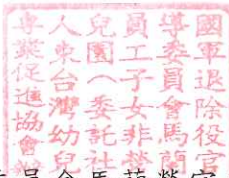 國軍退除役官
導委員會馬蘭
員工子女非營
兒園(委託社
人東台灣幼兒
專業促進協會辦
員會馬蘭榮家